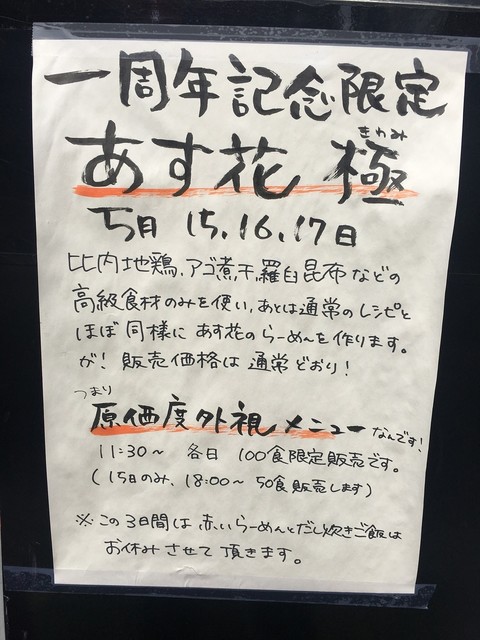 一周年記念限定
きわみ
あす花 極
5月 15.16.17日
比内地鶏、アゴ煮干、羅臼昆布などの
高級食材のみを使い、あとは通常のレシピと
ほぼ同様に あす花のらーめんを作ります。
が! 販売価格は 通常どおり!
つまり
原価度外視メニューなんです!
11:30~ 各日 100食限定販売です。
(15日のみ、18:00~ 50食販売します)
※この3日間は赤いらーめんとだし炊きご飯は
お休みさせて頂きます。